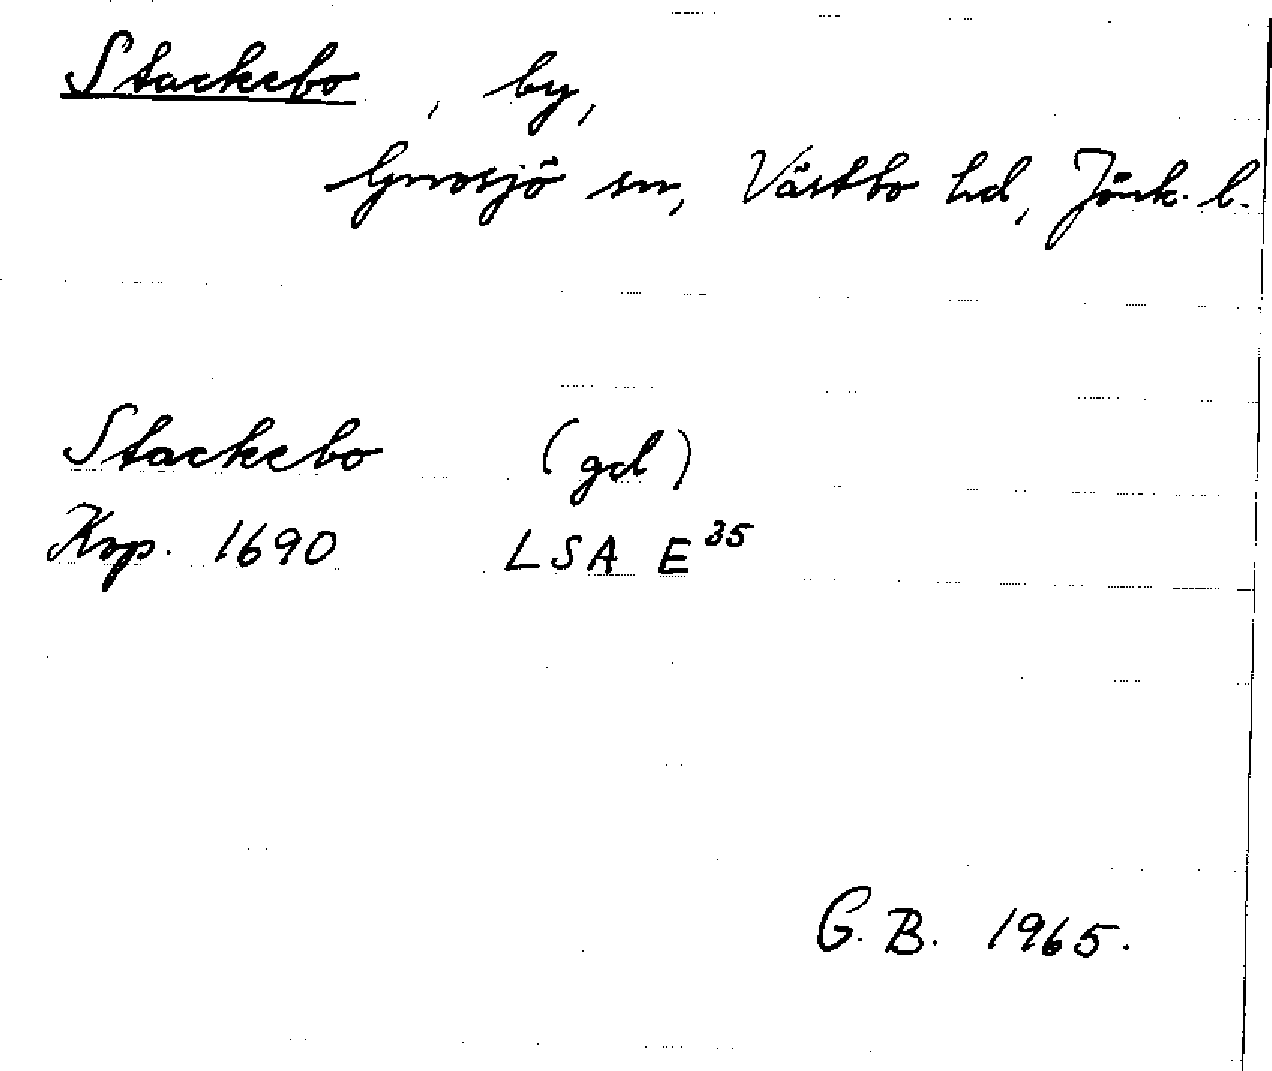 Stackebo, by,
Gnosjö sn, Västbo hd, Jönk. l.
Stackebo (gd)
Ksp. 1690 LSA E 35
G. B. 1965.